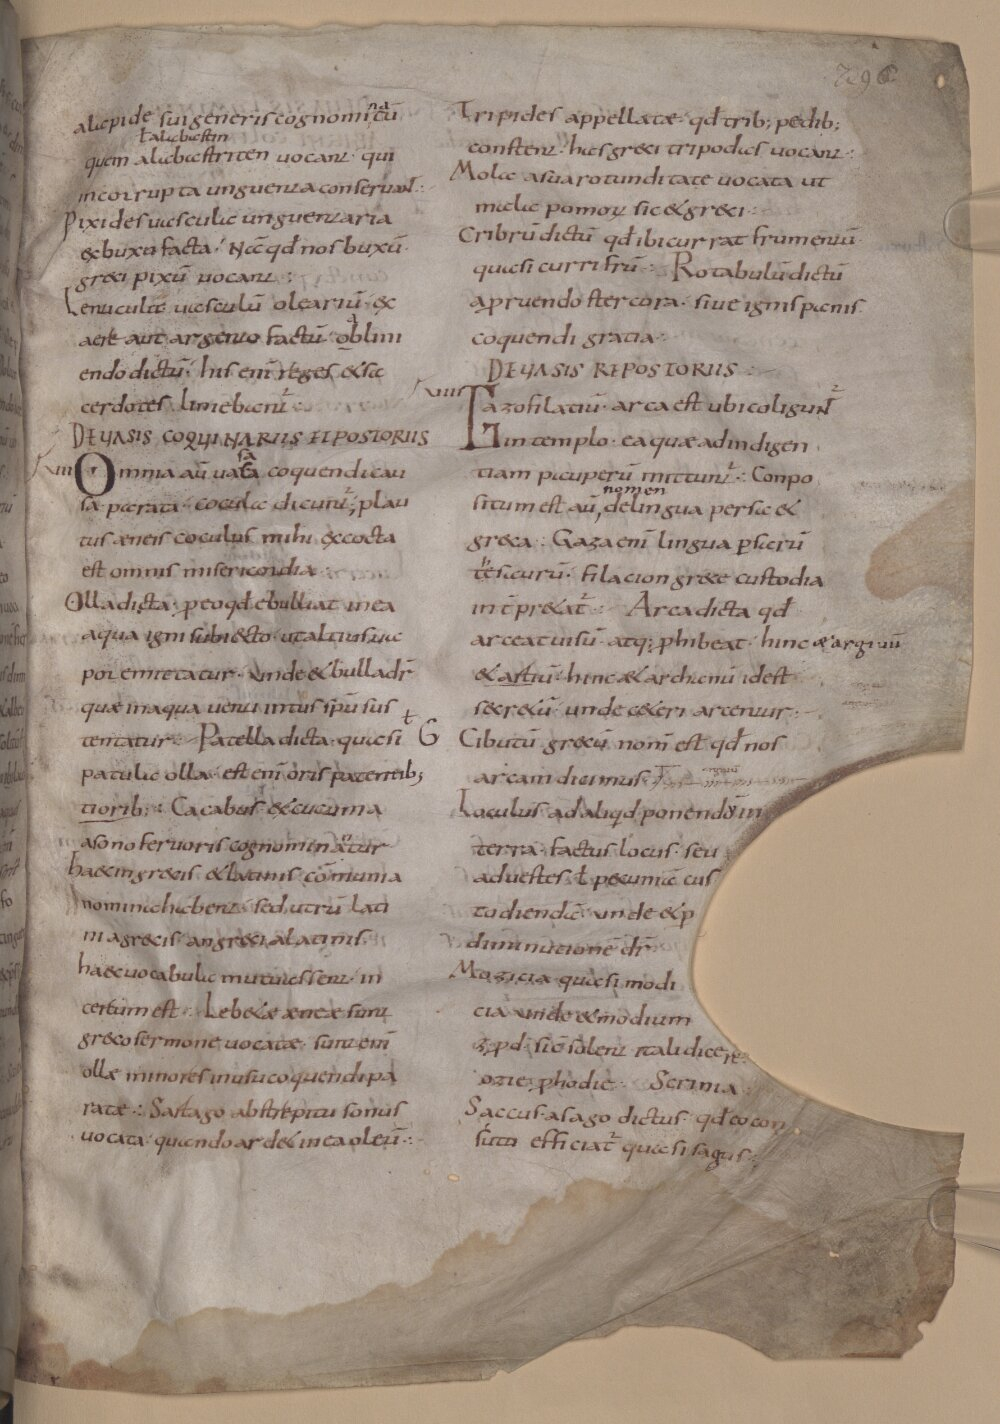 296
alapide sui generis cognominatū
ł alabastin
quem alabastriten uocant qui
incorrupta unguenta conseruant.
Pixides uascula unguentaria
ex buxo facta. Nā qđ nos buxū
greci pixū uocant.
Lenticula uasculū olearium ex
aere aut argento factū. oblini
endo dictū. his eni reges & sa
cerdotes liniebant.
DE UASIS COQUINARIIS ET PISTORIIS
xiii Omnia aū uasa coquendi cau
sa parata cocula dicunt; plau
tus æneis coculus mihi excocta
est omnis misericordia
Olla dicta p eo qđ ebulliat in ea
aqua igni subiecto. ut altius ua
por emittatur. unde & bulla dr̄
quæ in aqua uenti intus spū sus
tentatur. Patella dicta quasi
patula olla. est eni oris patentib;
tiorib; Cacabus & cucuma
asono feruoris cognominantur
haec in grecis & latinis comunia
nomina habent. sed utrū lati
ni agrecis an greci alatinis
haec uocabula mutuassent in
certum est. Lebetæ æneæ sunt
greco sermone uocatæ. sunt eni
ollæ minores in usu coquendi pa
ratæ. Sartago abstrepitu sonus
uocata quando ardet in ea oleū.
Tripides appellatæ. qđ trib; pedib;
constent. has greci tripodas uocant.
Mola asua rotunditate uocata ut
mala pomoꝝ sic & greci.
Cribrū dictū qđ ibi currat frumentū
quasi currifrū. Rotabulū dictū
aproendo stercora. siue ignis panis
coquendi gratia.
DE UASIS REPOSTORIIS
xiiii Gazofilatiū. arca est ubi coligunt
in templo. ea quæ ad indigen
tiam pauperū mittunt. Conpo
nomen
situm est aū, de lingua persica &
greca. Gaza eni lingua psarū
tesaurū. filacion grece custodia
int̄pretat. Arca dicta qđ
arceat uisū. atq; phibeat. hinc & argiuū
& astiū. hinc & archanū idest
secretū. unde ceteri arcentur.
Cibutū grecū nom̄ est qđ nos
arcam dicimus
Loculus ad aliqđ ponendū in
terra. factus locus. seu
aduestes ł pecunia cus
todienda. unde & p
diminutionē dr̄
Mozicia quasi modi
cia unde & modium
z p d. sic solent itali dicere
ozie p hodie. Scrinia
Saccus asago dictus. qđ eo con
suto efficiat quasi sagus.